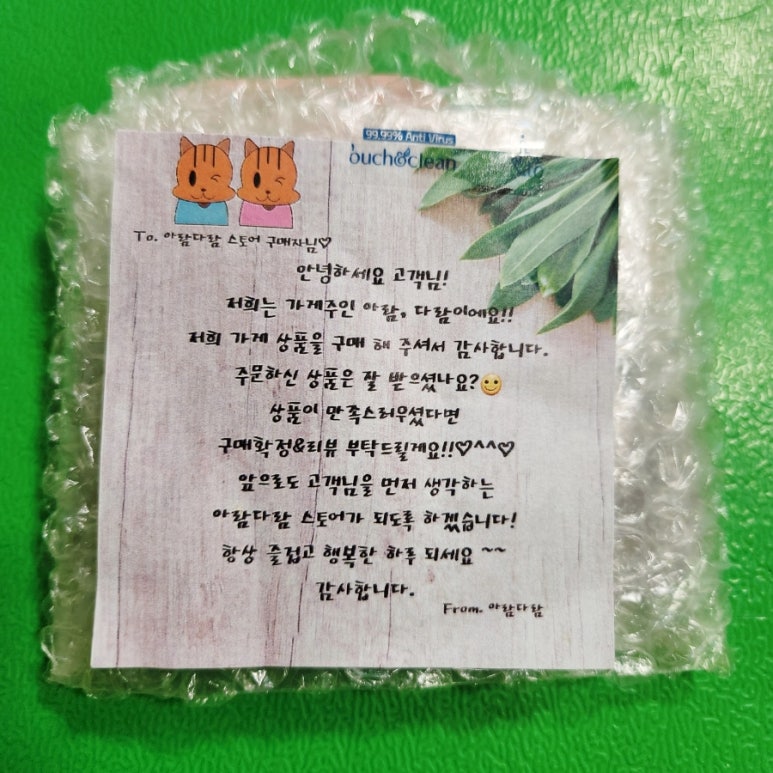 99.99% Anti Virus
ouch clean
To. 아람다람 스토어 구매자님♡
안녕하세요 고객님!
저희는 가게주인 아람, 다람이에요!!
저희 가게 상품을 구매 해 주셔서 감사합니다.
주문하신 상품은 잘 받으셨나요?🙂
상품이 만족스러우셨다면
구매확정&리뷰 부탁드릴게요!!♡^^♡
앞으로도 고객님을 먼저 생각하는
아람다람 스토어가 되도록 하겠습니다!
항상 즐겁고 행복한 하루 되세요 ~~
감사합니다.
From. 아람다람